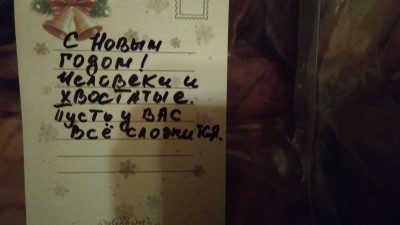 С Новым
годом!
Человеки и
хвостатые.
Пусть у ВАС
всё сложится.